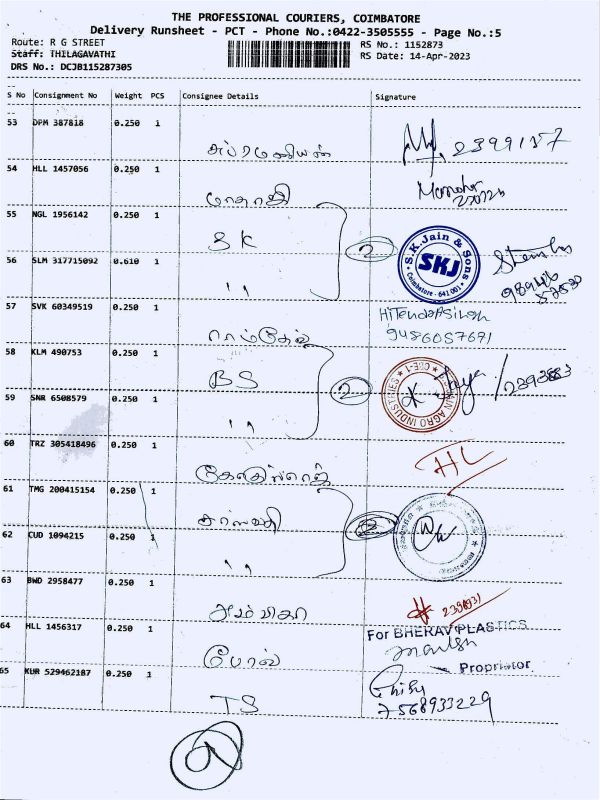 THE PROFESSIONAL COURIERS, COIMBATORE
Delivery Runsheet - PCT - Phone No.:0422-3505555 - Page No.:5
Route: R G STREET
RS No.: 1152873
Staff: THILAGAVATHI
RS Date: 14-Apr-2023
DRS No.: DCJB115287305
S No Consignment No Weight PCS Consignee Details Signature
53 DPM 387818 0.250 1
சுப்ரமணியன் 2399157
54 HLL 1457056 0.250 1
Manohar
55 NGL 1956142 0.250 1
SK 2 S.K.Jain & Sons SKJ Coimbatore - 641 001
56 SLM 317715092 0.610 1
" 98946
57 SVK 60349519 0.250 1
9486057691
58 KLM 490753 0.250 1
BS 2 AGRO INDUSTRIES CBE-1 Jaya / 2393883
59 SNR 6508579 0.250 1
"
60 TRZ 305418496 0.250 1
HL
61 TMG 200415154 0.250 1
2
62 CUD 1094215 0.250 1
"
63 BWD 2958477 0.250 1
அம்பிகா
For BHERAV PLASTICS
64 HLL 1456317 0.250 1
Propritor
65 KUR 529462187 0.250 1
TS 7568933229